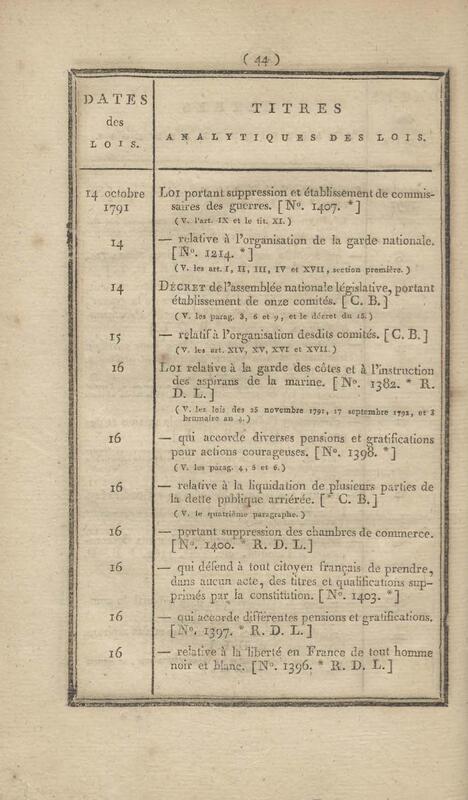 ( 44 )
DATES
des
LOIS.
TITRES
ANALYTIQUES DES LOIS.
14 octobre
1791
LOI portant suppression et établissement de commis-
saires des guerres. [ N°. 1407. * ]
( V. l'art. IX et le tit. XI. )
14
— relative à l'organisation de la garde nationale.
[ N°. 1214. * ]
( V. les art. I, II, III, IV et XVII, section première. )
14
DÉCRET de l'assemblée nationale législative, portant
établissement de onze comités. [ C. B. ]
( V. les parag. 3, 6 et 9, et le décret du 15. )
15
— relatif à l'organisation desdits comités. [ C. B. ]
( V. les art. XIV, XV, XVI et XVII. )
16
LOI relative à la garde des côtes et à l'instruction
des aspirans de la marine. [ N°. 1382. * R.
D. L. ]
( V. les lois des 25 novembre 1791, 17 septembre 1792, et 3
brumaire an 4. )
16
— qui accorde diverses pensions et gratifications
pour actions courageuses. [ N°. 1398. * ]
( V. les parag. 4, 5 et 6. )
16
— relative à la liquidation de plusieurs parties de
la dette publique arriérée. [ * C. B. ]
( V. le quatrième paragraphe. )
16
— portant suppression des chambres de commerce.
[ N°. 1400. * R. D. L. ]
16
— qui défend à tout citoyen français de prendre,
dans aucun acte, des titres et qualifications sup-
primés par la constitution. [ N°. 1403. * ]
16
— qui accorde différentes pensions et gratifications.
[ N°. 1397. * R. D. L. ]
16
— relative à la liberté en France de tout homme
noir et blanc. [ N°. 1396. * R. D. L. ]